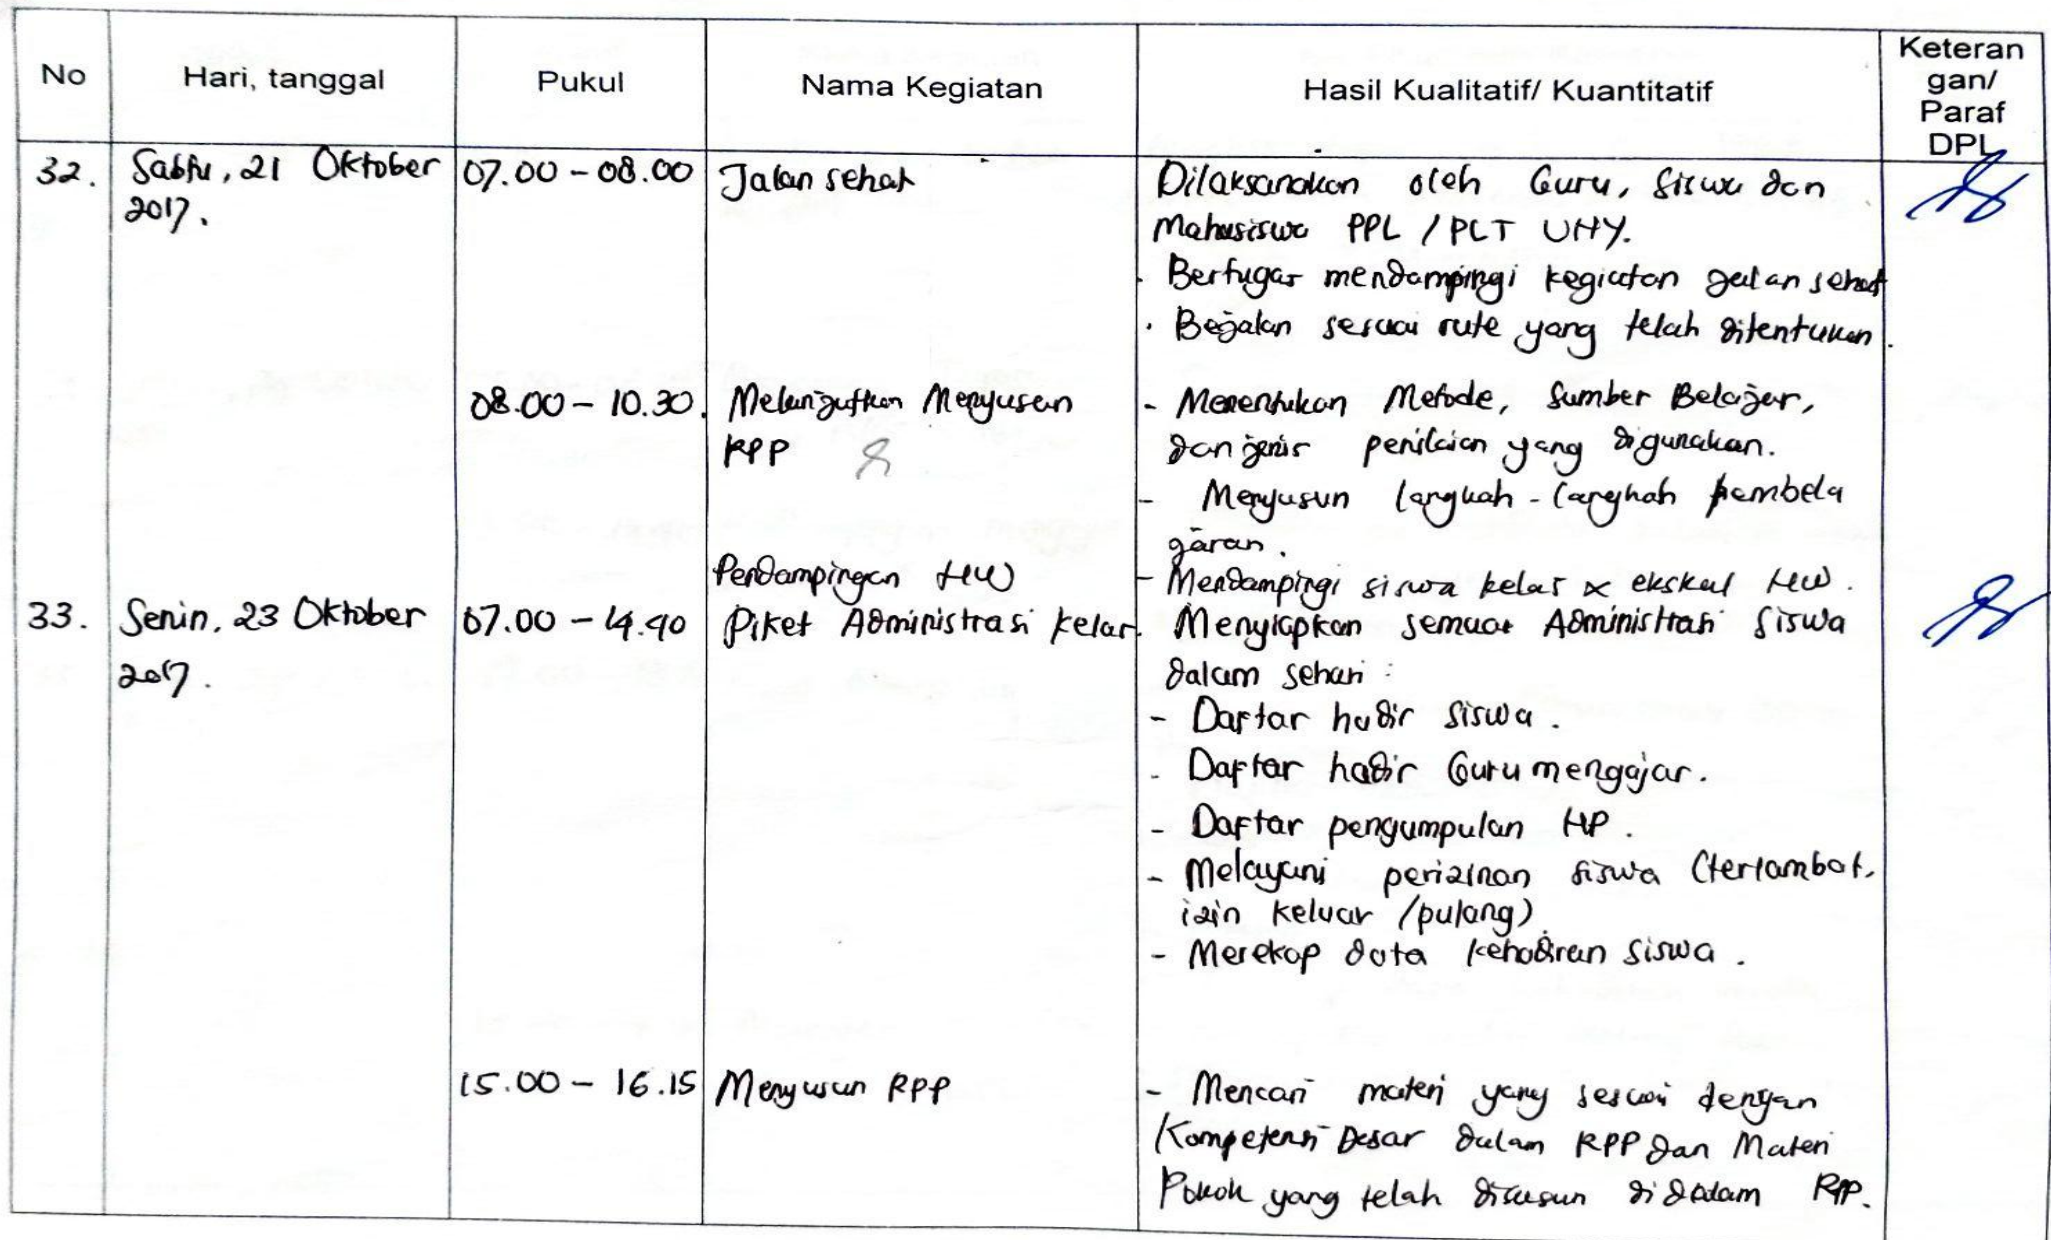 No Hari, tanggal Pukul Nama Kegiatan Hasil Kualitatif/ Kuantitatif Keteran
gan/
Paraf
DPL
32. Sabtu, 21 Oktober 07.00 - 08.00 Jalan sehat Dilaksanakan oleh Guru, siswa dan
2017. Mahasiswa PPL / PLT UNY.
. Bertugas mendampingi kegiatan jalan sehat
. Bejalan sesuai rute yang telah ditentukan.
08.00 - 10.30. Melanjutkan Menyusun - Menentukan Metode, Sumber Belajar,
RPP dan jenis penilaian yang digunakan.
- Menyusun langkah - langkah pembela
jaran.
Pendampingan HW - Mendampingi siswa kelas X ekskul HW.
33. Senin, 23 Oktober 07.00 - 14.40 Piket Administrasi kelas. Menyiapkan semua Administrasi Siswa
2017. dalam sehari :
- Daftar hadir siswa.
- Daftar hadir Guru mengajar.
- Daftar pengumpulan HP.
- Melayani perizinan siswa (terlambat,
izin keluar /pulang).
- Merekap data kehadiran siswa.
15.00 - 16.15 Menyusun RPP - Mencari materi yang sesuai dengan
Kompetensi Dasar dalam RPP dan Materi
Pokok yang telah disusun didalam RPP.